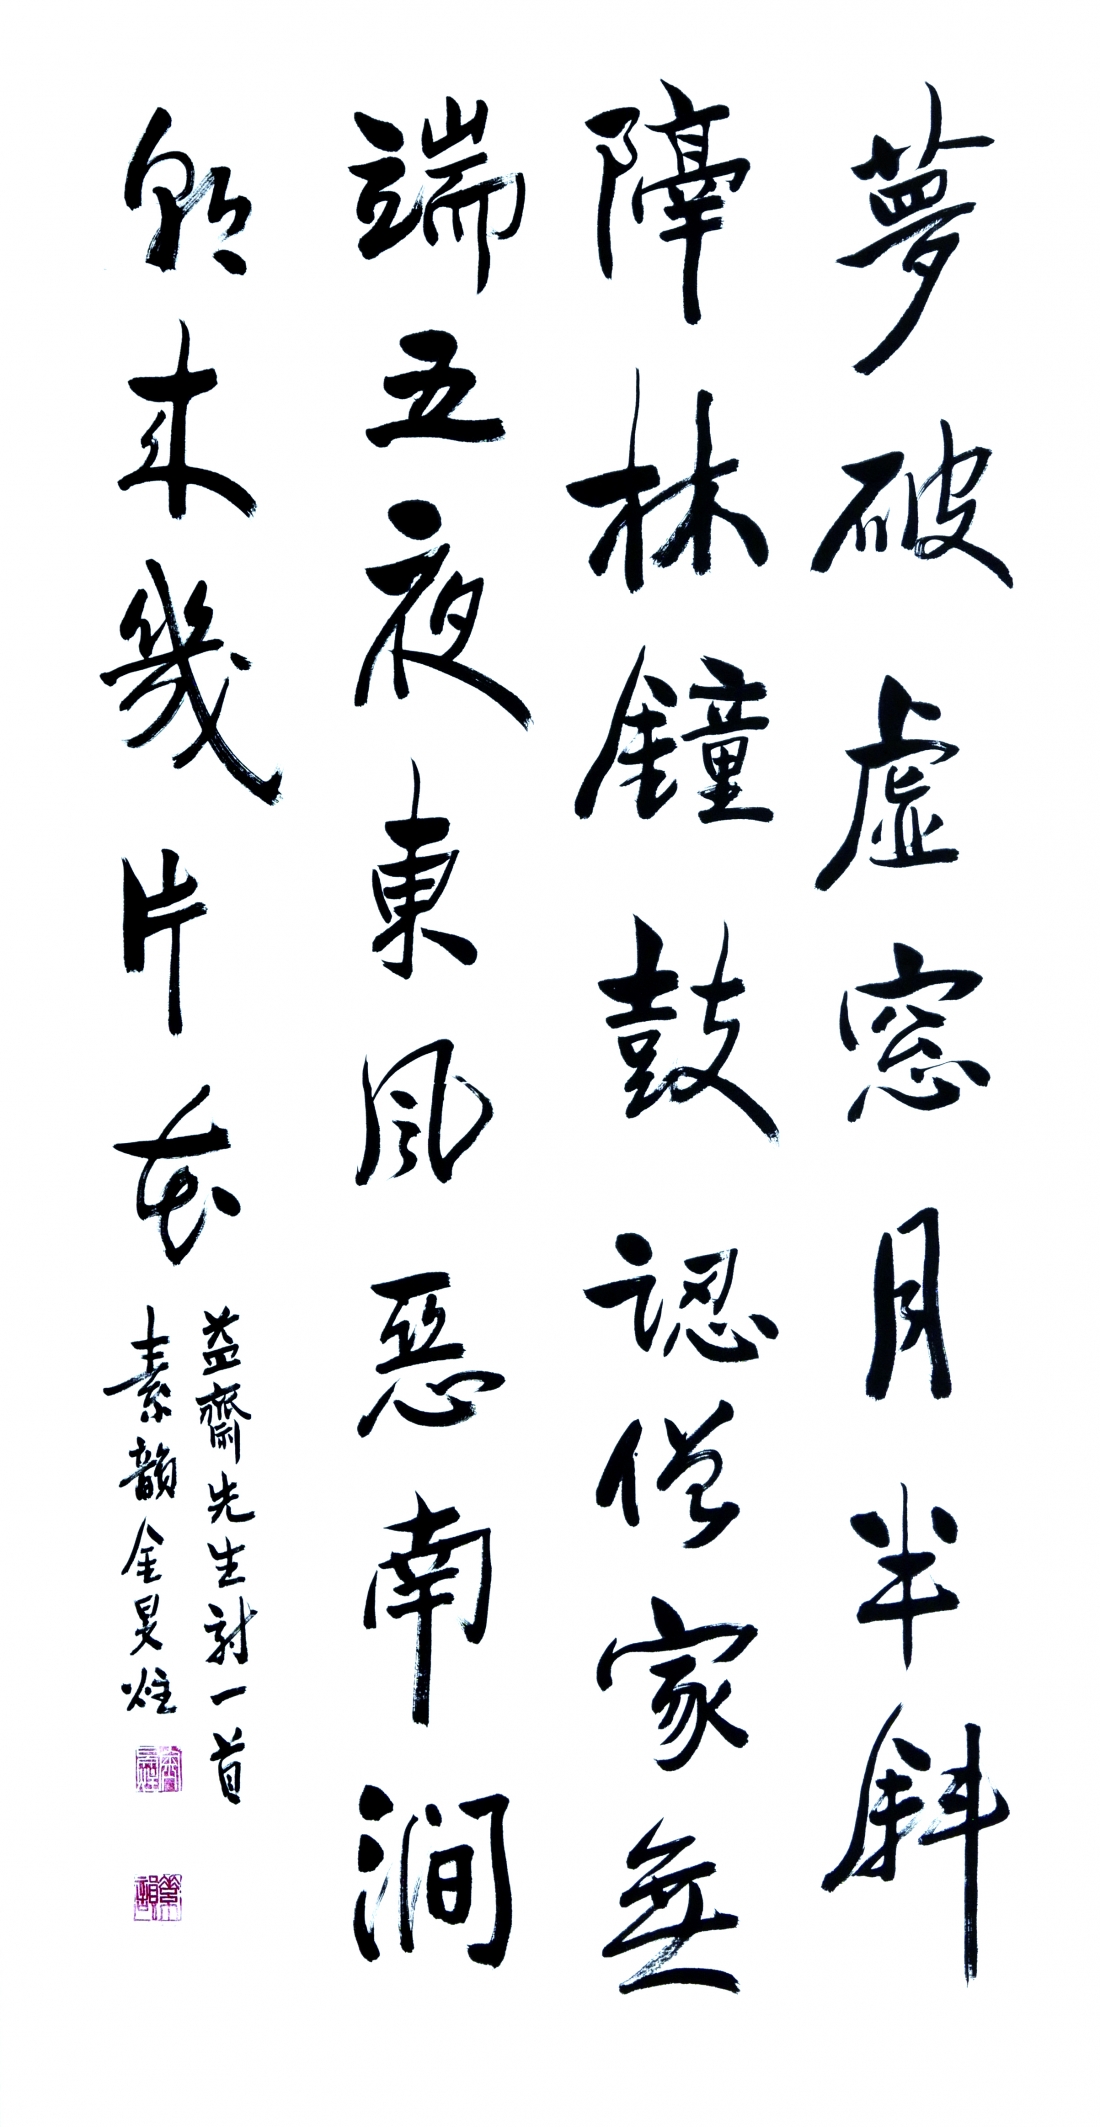 夢破虛窓月半斜
隔林鐘鼓認僧家無
端五夜東風惡南澗
朝來幾片花
益齋先生詩一首
素韻金旻炷